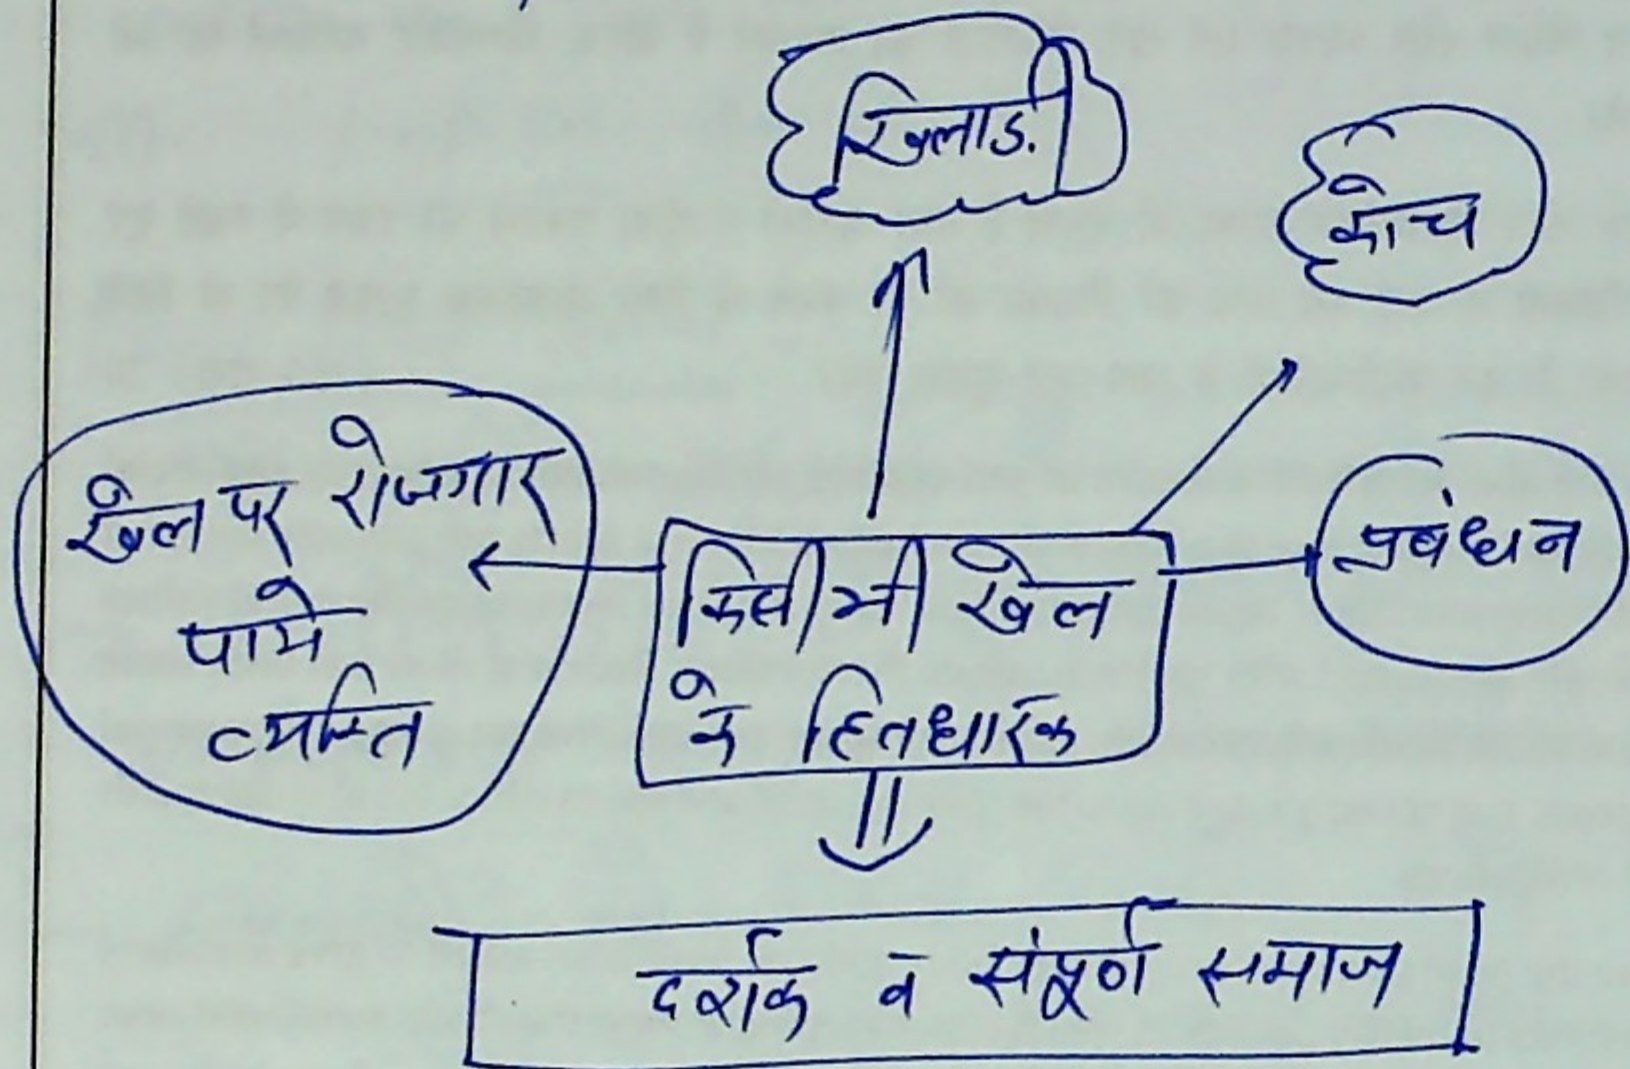 खिलाड़ी
कोच
खेल पर रोजगार
पामे
व्यक्ति
किसी भी खेल
के हितधारक
प्रबंधन
दर्शक व संपूर्ण समाज